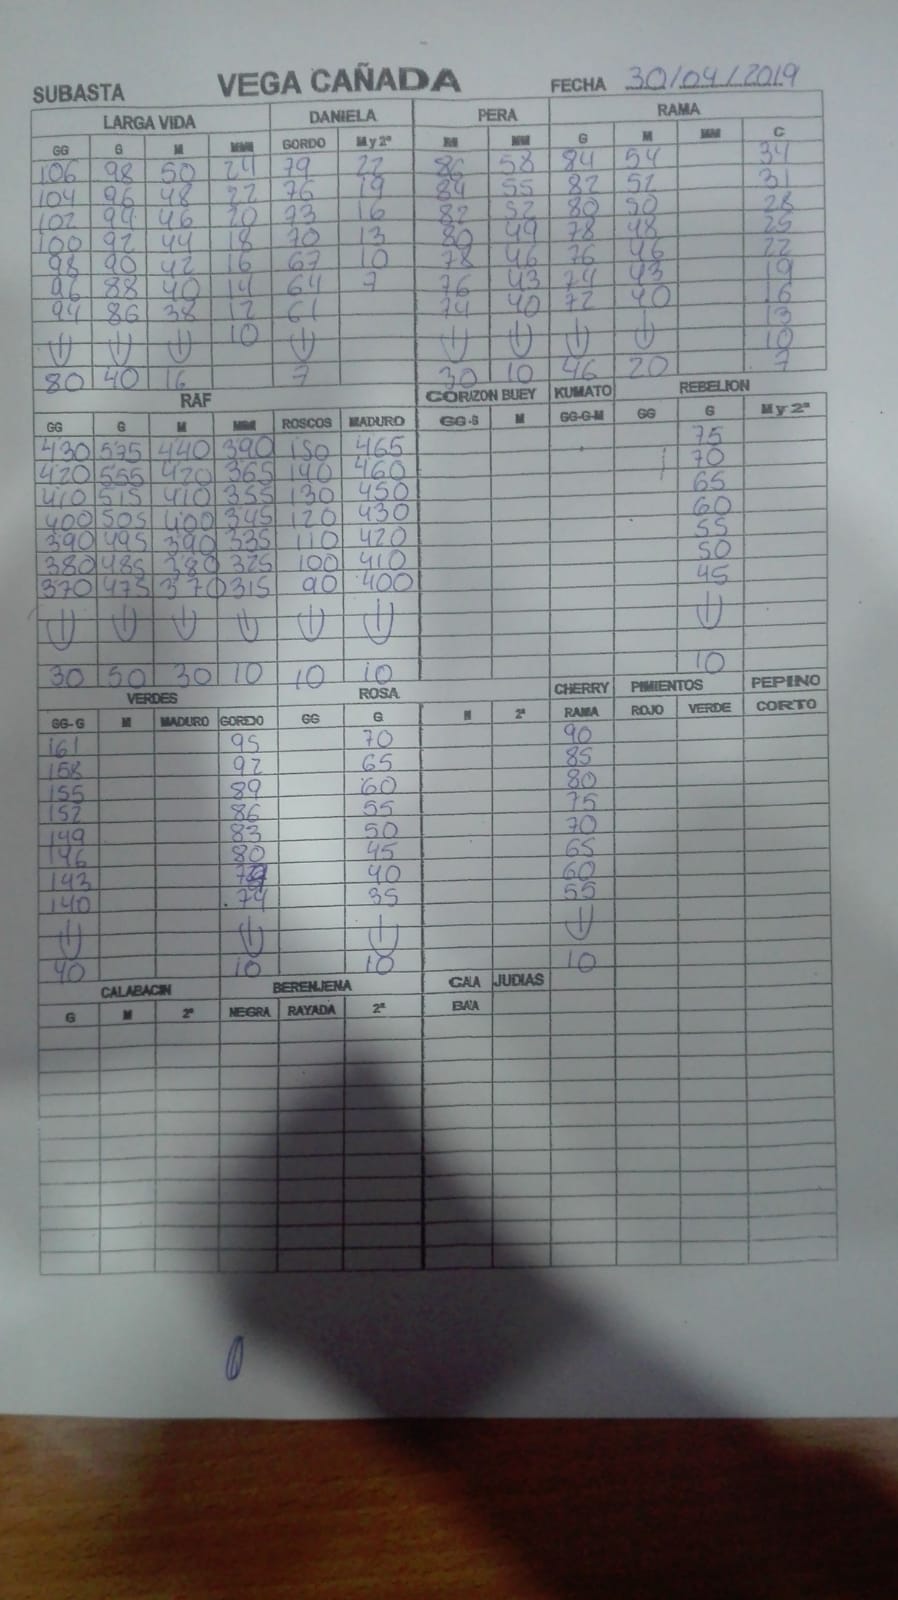 SUBASTA VEGA CAÑADA FECHA 30/04/2019
LARGA VIDA DANIELA PERA RAMA
GG G M MM GORDO M y 2ª M MM G M MM C
106 98 50 24 79 22 86 58 84 54 34
104 96 48 22 76 19 84 55 82 52 31
102 94 46 20 73 16 82 52 80 50 28
100 92 44 18 70 13 80 49 78 48 25
98 90 42 16 67 10 78 46 76 46 22
96 88 40 14 64 7 76 43 74 43 19
94 86 38 12 61 74 40 72 40 16
10 13
10
80 40 16 7 30 10 46 20 7
RAF CORIZON BUEY KUMATO REBELION
GG G M MM ROSCOS MADURO GG-G M GG-G-M GG G M y 2ª
430 575 440 390 150 465 75
420 555 420 365 140 460 70
410 515 410 355 130 450 65
400 505 400 345 120 430 60
390 495 390 335 110 420 55
380 485 380 325 100 410 50
370 475 370 315 90 400 45
30 50 30 10 10 10 10
VERDES ROSA CHERRY PIMIENTOS PEPINO
GG-G M MADURO GORDO GG G M 2ª RAMA ROJO VERDE CORTO
161 95 70 90
158 92 65 85
155 89 60 80
152 86 55 75
149 83 50 70
146 80 45 65
143 40 60
140 74 35 55
40 10 10 10
CALABACIN BERENJENA CALA JUDIAS
G M 2ª NEGRA RAYADA 2ª BA'A